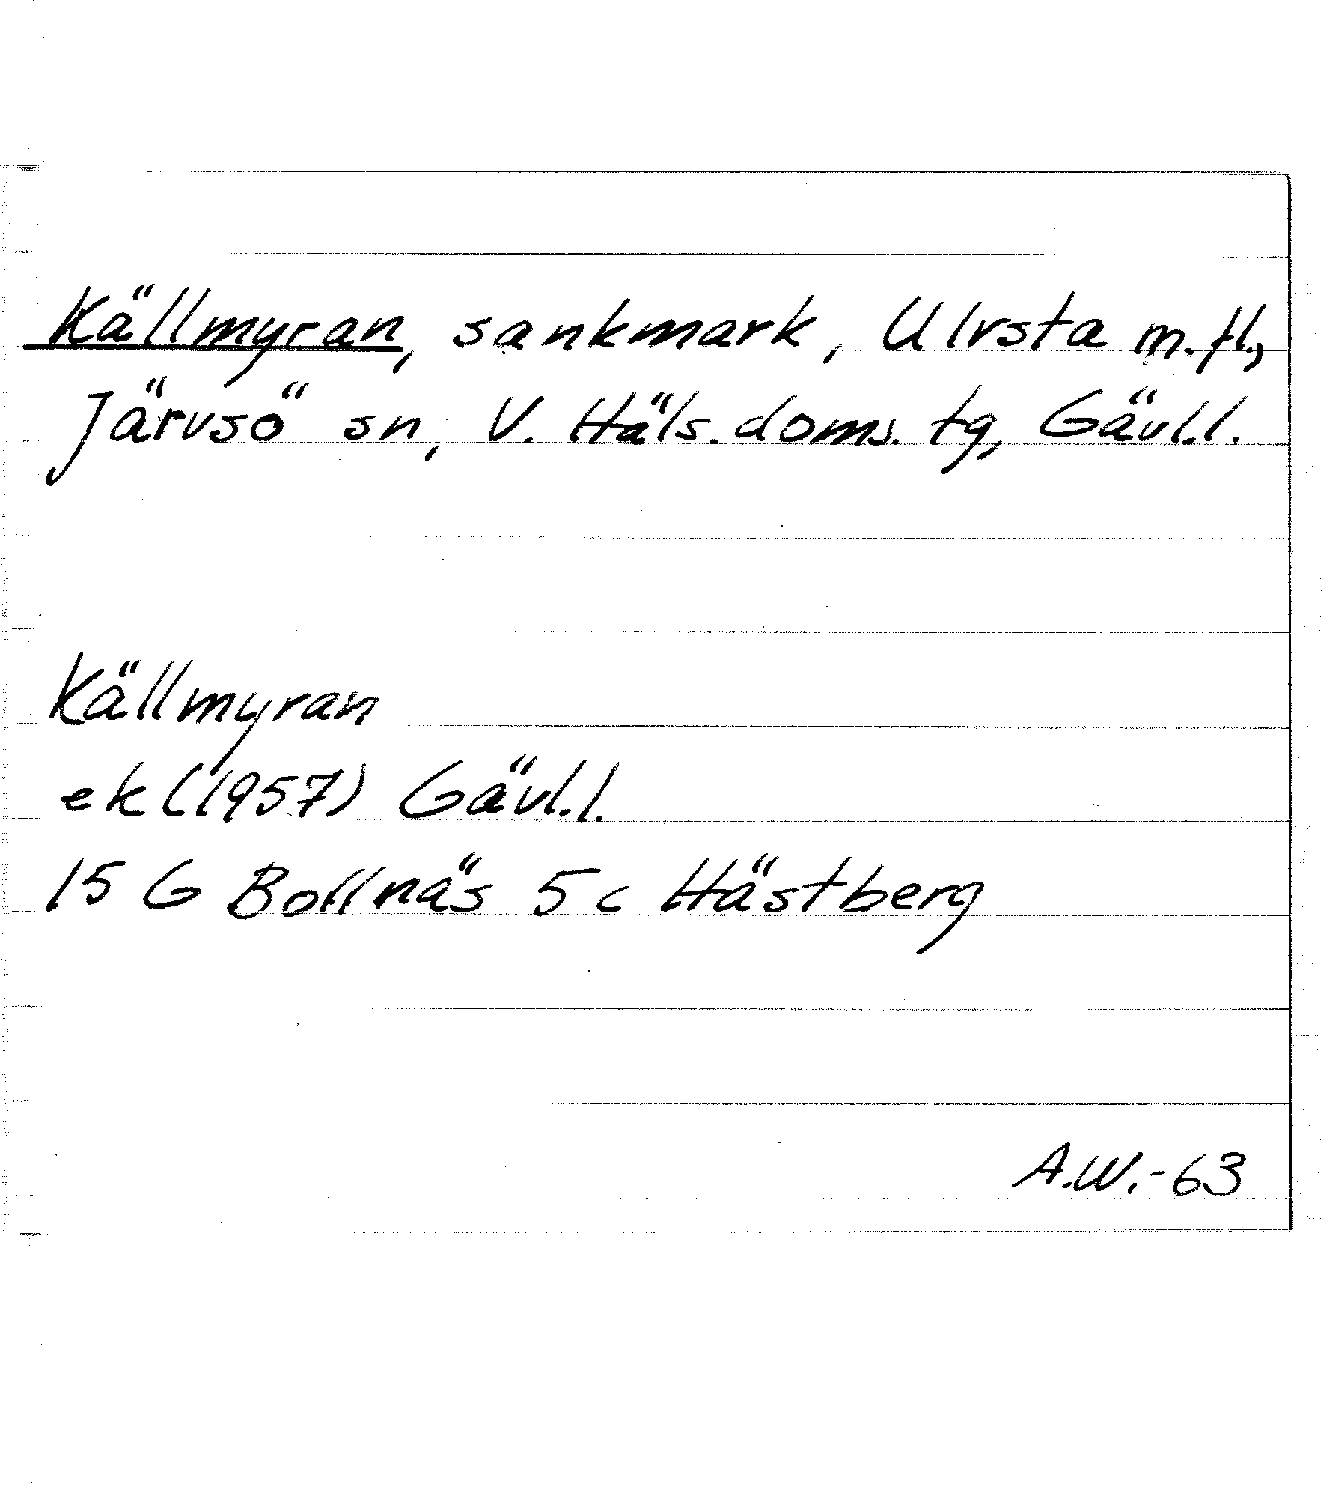 Källmyran, sankmark, Ulvsta m.fl.,
Järvsö sn, V. Häls. doms. tg, Gävl.l.
Källmyran
ek (1957) Gävl.l.
15 G Bollnäs 5 c Hästberg
A.W.-63